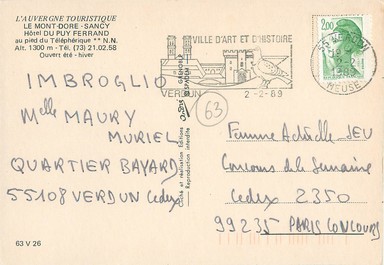 L'AUVERGNE TOURISTIQUE
LE MONT-DORE - SANCY
Hôtel DU PUY FERRAND
au pied du Téléphérique ** N.N.
Alt. 1300 m - Tél. (73) 21.02.58
Ouvert été - hiver
VILLE D'ART ET D'HISTOIRE
VERDUN
2-2-89
2,00
MEUSE
63
IMBROGLIO
Melle MAURY
MURIEL
QUARTIER BAYARD
55108 VERDUN Cedex
Femme Actuelle JEU
Concours de la Semaine
Cedex 2350
99235 PARIS CONCOURS
Editions
Reproduction interdite
63 V 26